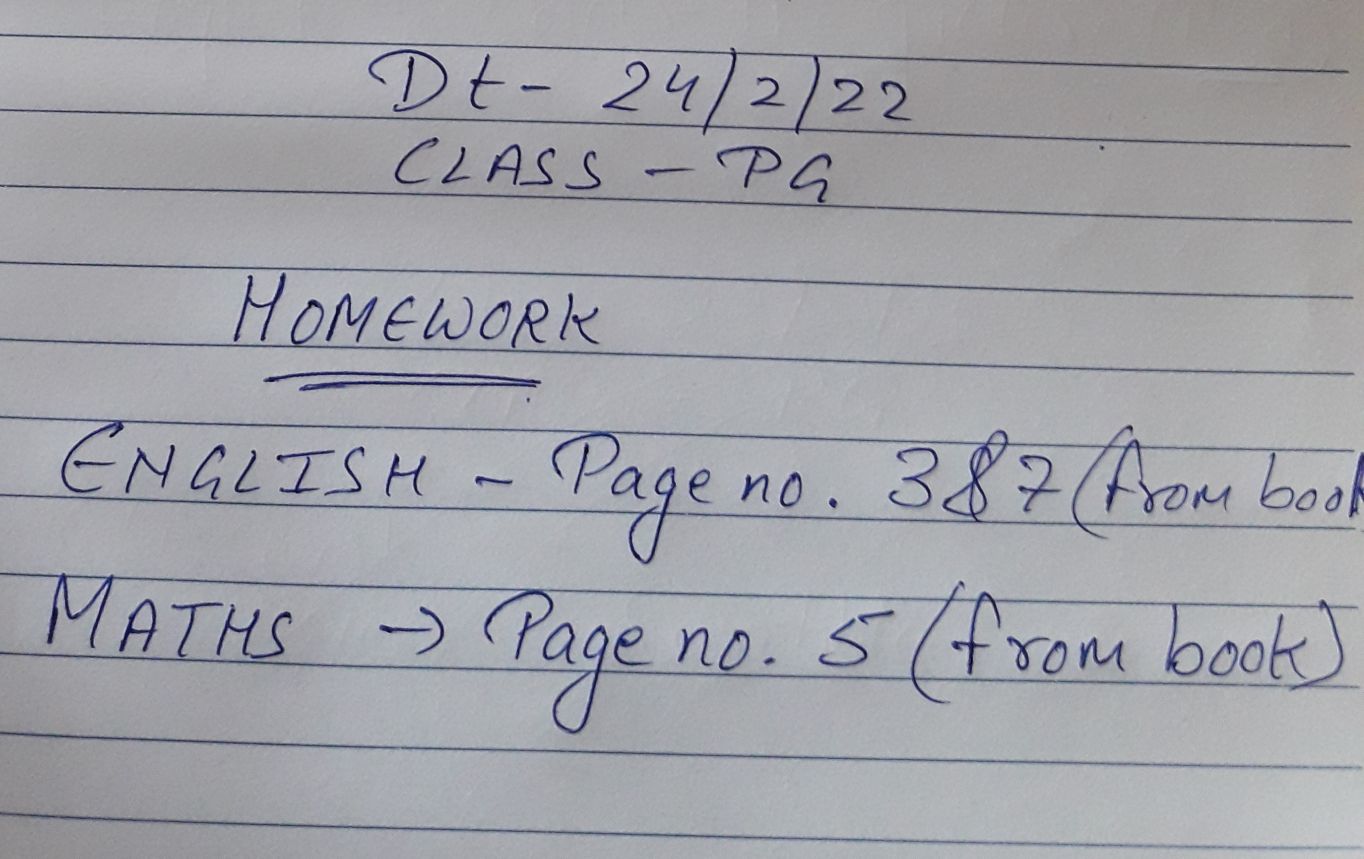 Dt- 24/2/22
CLASS - PG
HOMEWORK
ENGLISH - Page no. 3&7 (from book
MATHS → Page no. 5 (from book)